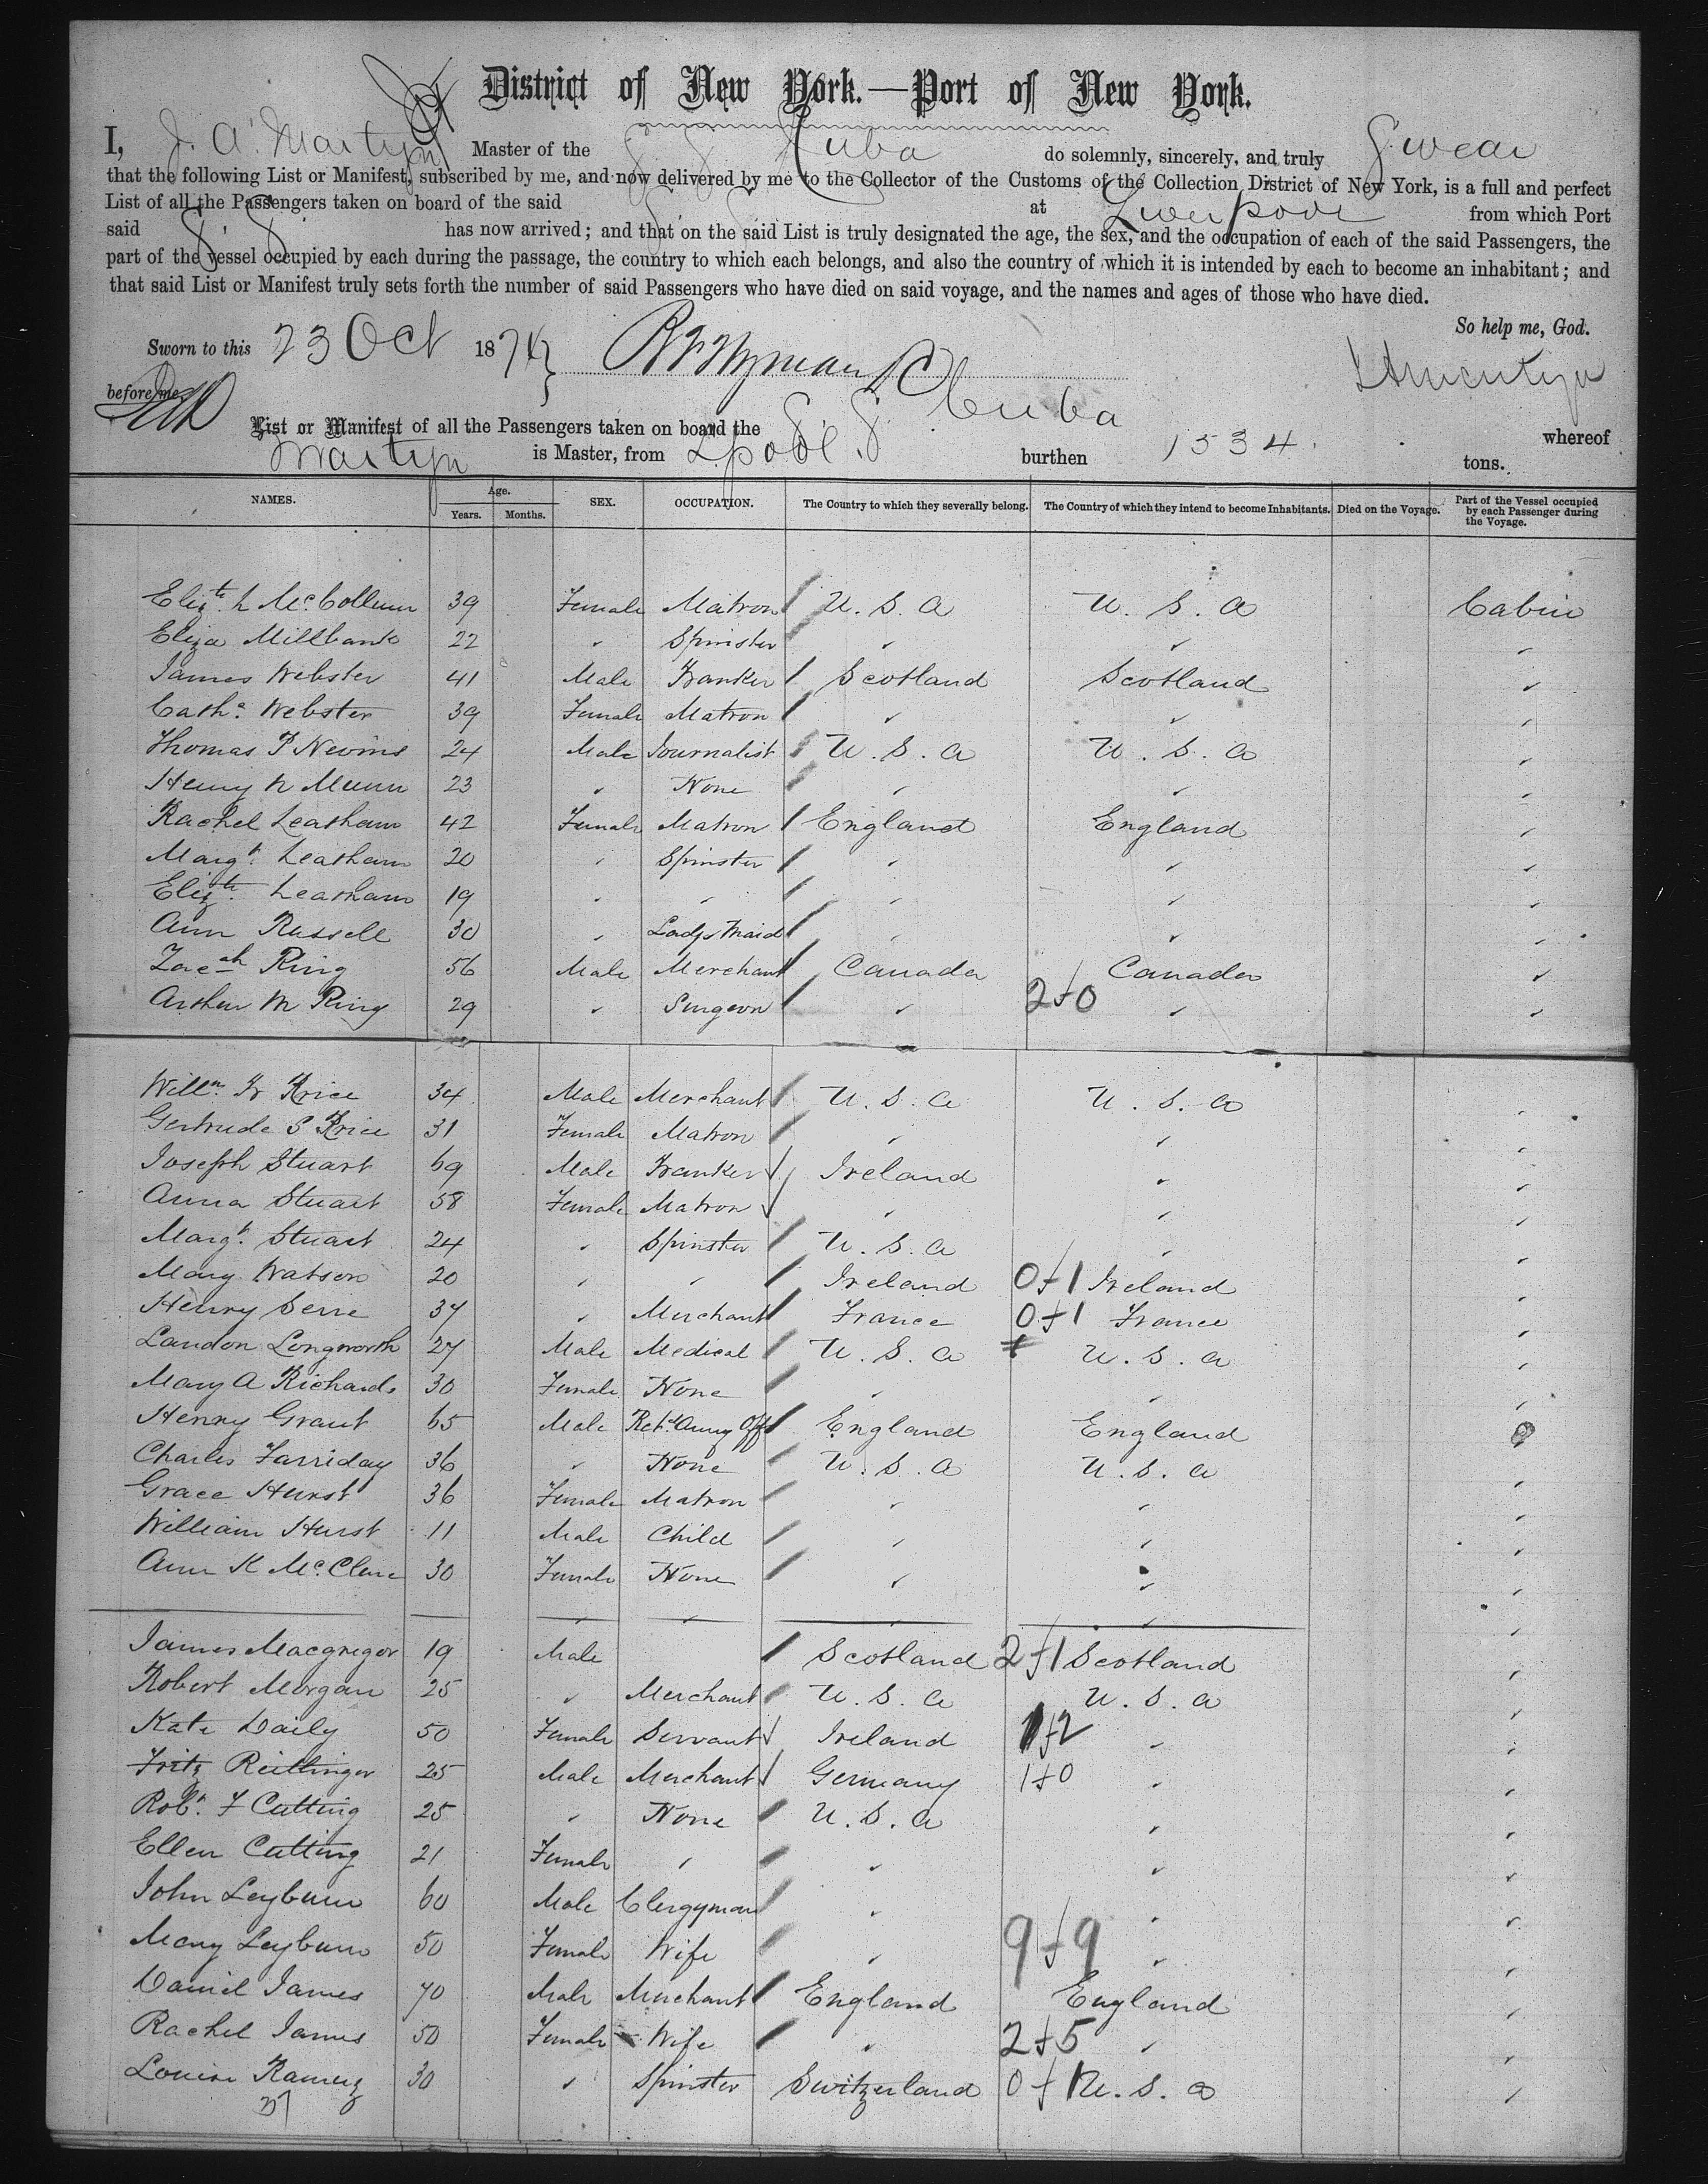 District of New York.—Port of New York.
I, J. A. Martyn Master of the S S Cuba do solemnly, sincerely, and truly Swear
that the following List or Manifest, subscribed by me, and now delivered by me to the Collector of the Customs of the Collection District of New York, is a full and perfect
List of all the Passengers taken on board of the said S S at Liverpool from which Port
said S S has now arrived; and that on the said List is truly designated the age, the sex, and the occupation of each of the said Passengers, the
part of the vessel occupied by each during the passage, the country to which each belongs, and also the country of which it is intended by each to become an inhabitant; and
that said List or Manifest truly sets forth the number of said Passengers who have died on said voyage, and the names and ages of those who have died.
So help me, God.
Sworn to this 23 Oct 1874
before me
List or Manifest of all the Passengers taken on board the S S Cuba whereof
Martyn is Master, from Lpool burthen 1534 tons.
NAMES. Age. Years. Months. SEX. OCCUPATION. The Country to which they severally belong. The Country of which they intend to become Inhabitants. Died on the Voyage. Part of the Vessel occupied by each Passenger during the Voyage.
Elizth L McCollum 39 Female Matron U.S.A U.S.A Cabin
Eliza Millbank 22 " Spinster " " "
James Webster 41 Male Banker Scotland Scotland "
Cathe Webster 39 Female Matron " " "
Thomas P Nevins 24 Male Journalist U.S.A U.S.A "
Henry N Munn 23 " None " " "
Rachel Leatham 42 Female Matron England England "
Margt Leatham 20 " Spinster " " "
Elizth Leatham 19 " " " " "
Ann Russell 30 " Ladys Maid " " "
Zacah Ring 56 Male Merchant Canada Canada "
Arthur M Ring 29 " Surgeon " 2+0 " "
Willm B Brice 34 Male Merchant U.S.A U.S.A "
Gertrude S Brice 31 Female Matron " " "
Joseph Stuart 69 Male Banker Ireland " "
Anna Stuart 58 Female Matron " " "
Margt Stuart 24 " Spinster U.S.A " "
Mary Watson 20 " " Ireland 0+1 Ireland "
Henry Serre 37 " Merchant France 0+1 France "
Landon Longworth 27 Male Medical U.S.A U.S.A "
Mary A Richards 30 Female None " " "
Henry Grant 65 Male Retd Army Off England England "
Charles Farriday 36 " None U.S.A U.S.A "
Grace Hurst 36 Female Matron " " "
William Hurst 11 Male Child " " "
Ann K McClure 30 Female None " " "
James Macgregor 19 Male Scotland 2+1 Scotland "
Robert Morgan 25 " Merchant U.S.A U.S.A "
Kate Daily 50 Female Servant Ireland 1+2 " "
Fritz Reittinger 25 Male Merchant Germany 1+0 " "
Robt F Cutting 25 " None U.S.A " "
Ellen Cutting 21 Female " " " "
John Leyburn 60 Male Clergyman " " "
Mary Leyburn 50 Female Wife " 9+9 " "
Daniel James 70 Male Merchant England England "
Rachel James 50 Female Wife " 2+5 " "
Louise Ramuz 30 " Spinster Switzerland 0+1 U.S.A "